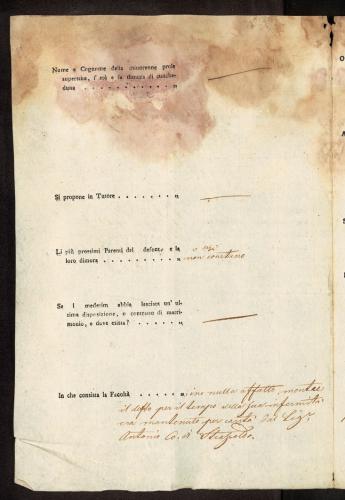 Nome e Cognome della minorenne prole
superstite, l' età e la dimora di ciasche-
duno . . . . . . . . . . . „
Si propone in Tutore . . . . . . . „
Li più prossimi Parenti del defunto, e la
loro dimora . . . . . . . . . „ non constano
Se i medesim abbia lasciato un' ul-
tima disposizione, o contratto di matri-
monio, e dove esista? . . . . . . „
In che consista la Facoltà . . . . . „ nulla affatto, mentre
il per il tempo della sua infermità
era mantenuto per carità dal Sig.r
Antonio di